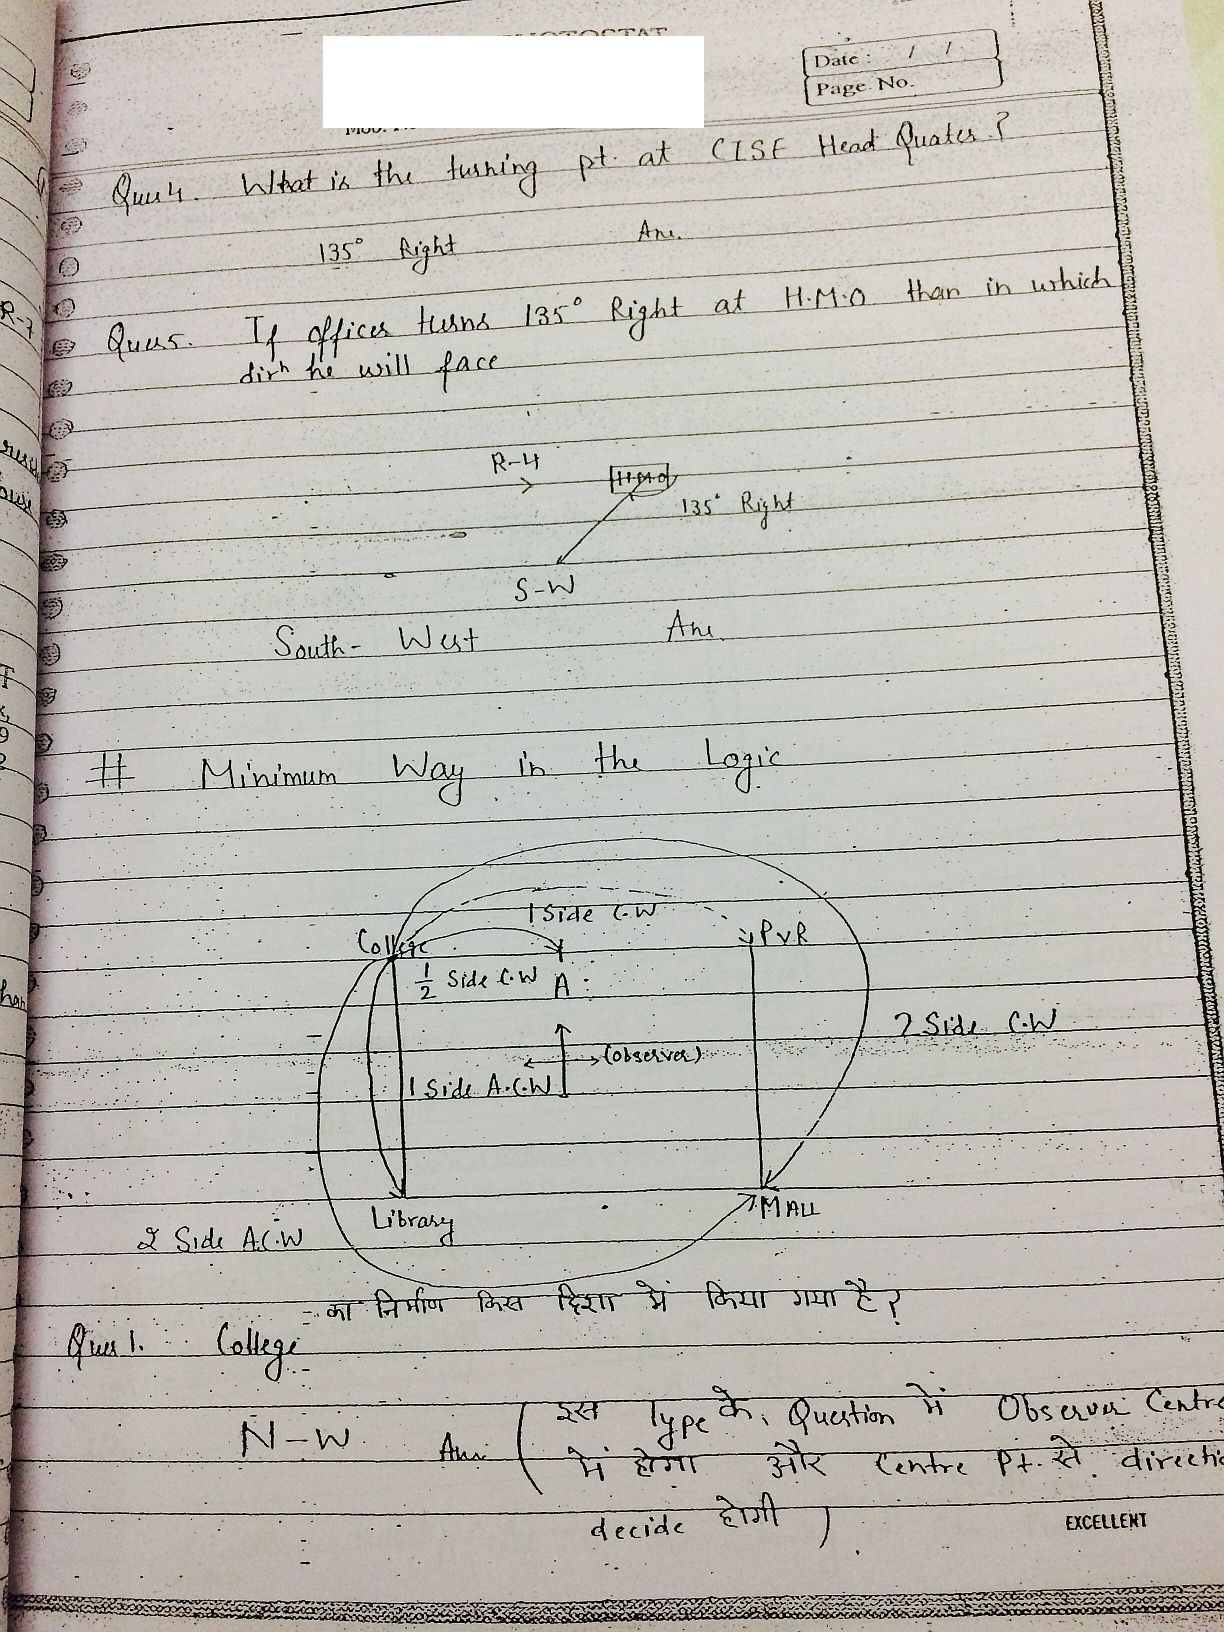 Date : / /
Page No.
Ques 4. What is the turning pt. at CISF Head Quater ?
135° Right Ans.
Ques 5. If officer turns 135° Right at H.M.O than in which
dirⁿ he will face
R-4
H.M.O
135° Right
S-W
South- West Ans.
# Minimum Way in the Logic
1 Side C.W
College
PVR
1/2 Side C.W
A
2 Side C.W
(observer)
1 Side A.C.W
Library
MALL
2 Side A.C.W
का निर्माण किस दिशा में किया गया है ?
Ques 1. College
N-W Ans. ( इस Type के Question में Observer Centre
में होगा और Centre Pt. से directi
decide होगी )
EXCELLENT
R-7